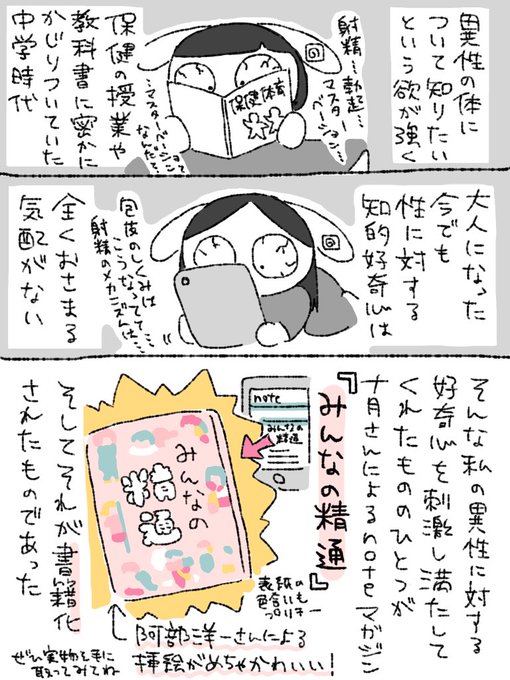 異性の体に
ついて知りたい
という欲が強く
射精…勃起…
マスター
ベーション…
保健体育
保健の授業や
教科書に密かに
かじりついていた
中学時代
…マスターベーションって
なんだ…?
大人になった
今でも
性に対する
知的好奇心は
包皮のしくみは
こうなってて…
射精のメカニズムは…
全くおさまる
気配がない
そんな私の異性に対する
好奇心を刺激し満たして
くれたもののひとつが
十月さんによるnoteマガジン
『みんなの精通』
note
みんなの
精通
みんなの
精通
そしてそれが書籍化
されたものであった
表紙の
色合いも
プリチー
阿部洋一さんによる
挿絵がめちゃかわいい!
ぜひ実物を手に
取ってみてね